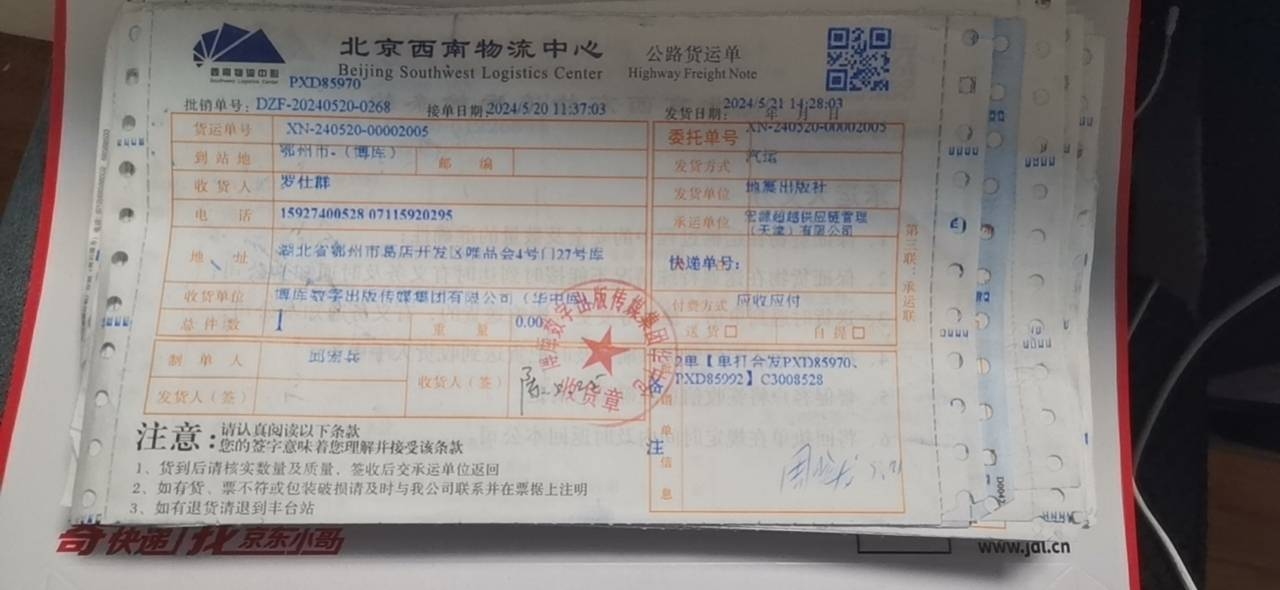 北京西南物流中心 公路货运单
西南物流中心 Beijing Southwest Logistics Center Highway Freight Note
Southwest Logistics Center
PXD85970
批销单号：DZF-20240520-0268 接单日期：2024/5/20 11:37:03 发货日期： 年 月 日 2024/5/21 14:28:03
货运单号 XN-240520-00002005 委托单号 XN-240520-00002005
到站地 鄂州市-（博库） 邮编 发货方式 汽运
收货人 罗仕群 发货单位 地震出版社
电话 15927400528 07115920295 承运单位 宏源超越供应链管理（天津）有限公司
地址 湖北省鄂州市葛店开发区唯品会4号门27号库 快递单号：
收货单位 博库数字出版传媒集团有限公司（华中 付费方式 应收应付
总件数 1 重量 0.00 送货□ 自提□
制单人 收货人（签） 2单【单打合发PXD85970、
PXD85992】C3008528
发货人（签）
备注
单
信
息
第三联：承运联
博库数字出版传媒集团
收货章
注意：请认真阅读以下条款
您的签字意味着您理解并接受该条款
1、货到后请核实数量及质量，签收后交承运单位返回
2、如有货、票不符或包装破损请及时与我公司联系并在票据上注明
3、如有退货请退到丰台站
寄快递 找京东小哥
www.jdl.cn